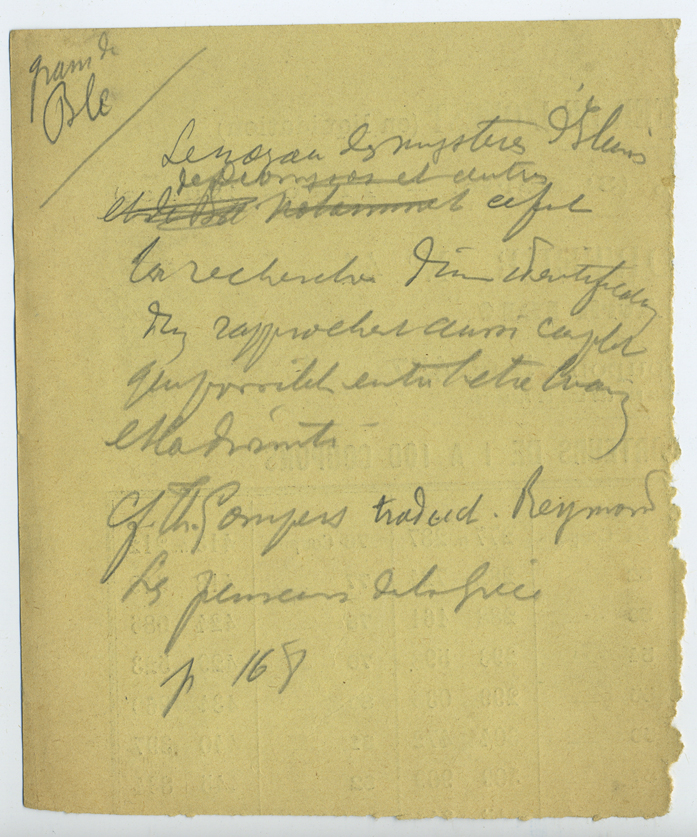 grain de
Blé
Le noyau des mystères d'Éleusis
de Dionysos et autres
et de notamment c'est
la recherche d'une identification
d'un rapprochement aussi complet
que possible entre l'être humain
et la divinité
Cf. Th. Gomperz traduct. Reymond
Les penseurs de la Grèce
p 168